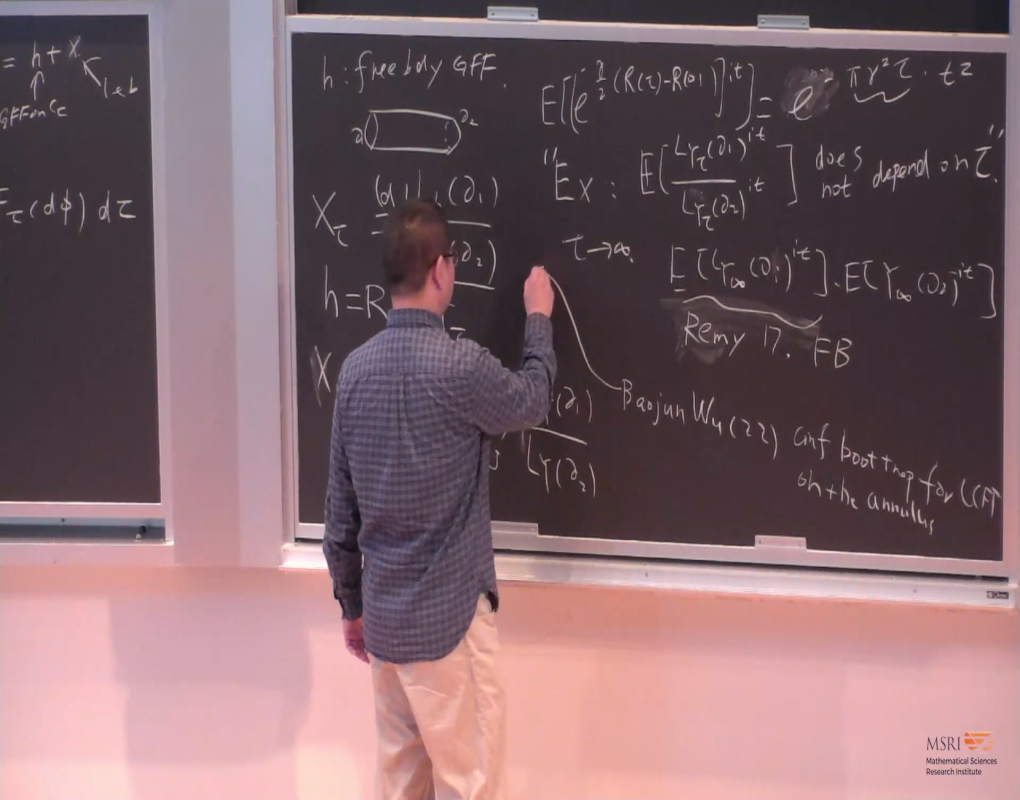 = h + X
Leb
GFF on C_τ
(dφ) dτ
h : free bdy GFF.
∂_2
X_τ = (∂_1)
(∂_2)
h = R
X
(∂_1)
L_Y(∂_2)
E[(e^{-\frac{γ}{2}(R(τ)-R(0))})^{it}] = e^{πγ²τ · t²}
"Ex : E[\frac{L_{Y_τ}(∂_1)^{it}}{L_{Y_τ}(∂_2)^{it}}] does not depend on τ."
τ → ∞. E[L_{Y_∞}(∂_1)^{it}] · E[Y_∞(∂_2)^{-it}]
Remy 17. FB
Baojun Wu (22) conf bootstrap for LCFT
on the annulus
MSRI
Mathematical Sciences
Research Institute